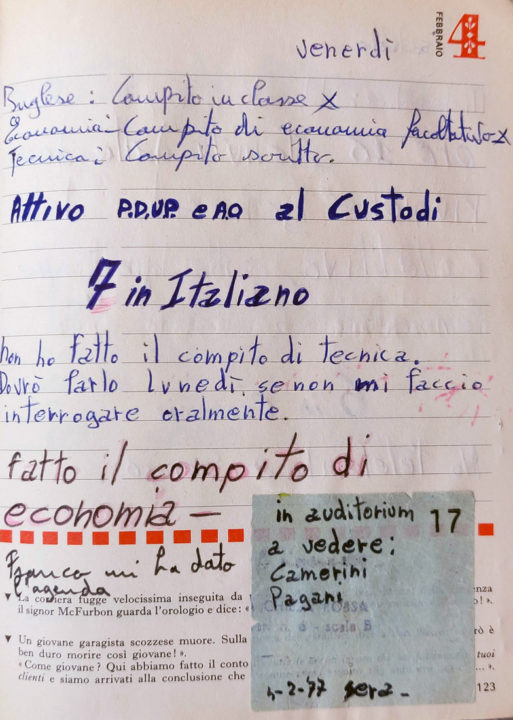 4
FEBBRAIO
venerdì
Inglese: Compito in classe X
Economia: Compito di economia facoltativo X
Tecnica: Compito scritto.
Attivo P.D.U.P. e A.O al Custodi
7 in Italiano
non ho fatto il compito di tecnica.
Dovrò farlo lunedì, se non mi faccio
interrogare oralmente.
fatto il compito di
economia —
Franco mi ha dato
l'agenda
in auditorium 17
a vedere:
Camerini
Pagani
ROSSA
scala B
4-2-77 sera -
▼ La corriera fugge velocissima inseguita da
enza
il signor McFurbon guarda l'orologio e dice: «
o! ».
▼ Un giovane garagista scozzese muore. Sulla
rò è
ben duro morire così giovane! ».
« Come giovane? Qui abbiamo fatto il conto
tuoi
clienti e siamo arrivati alla conclusione che
... ».
123